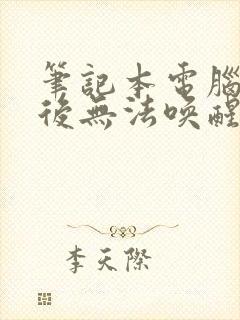 筆記本電腦
後無法喚醒
李天際